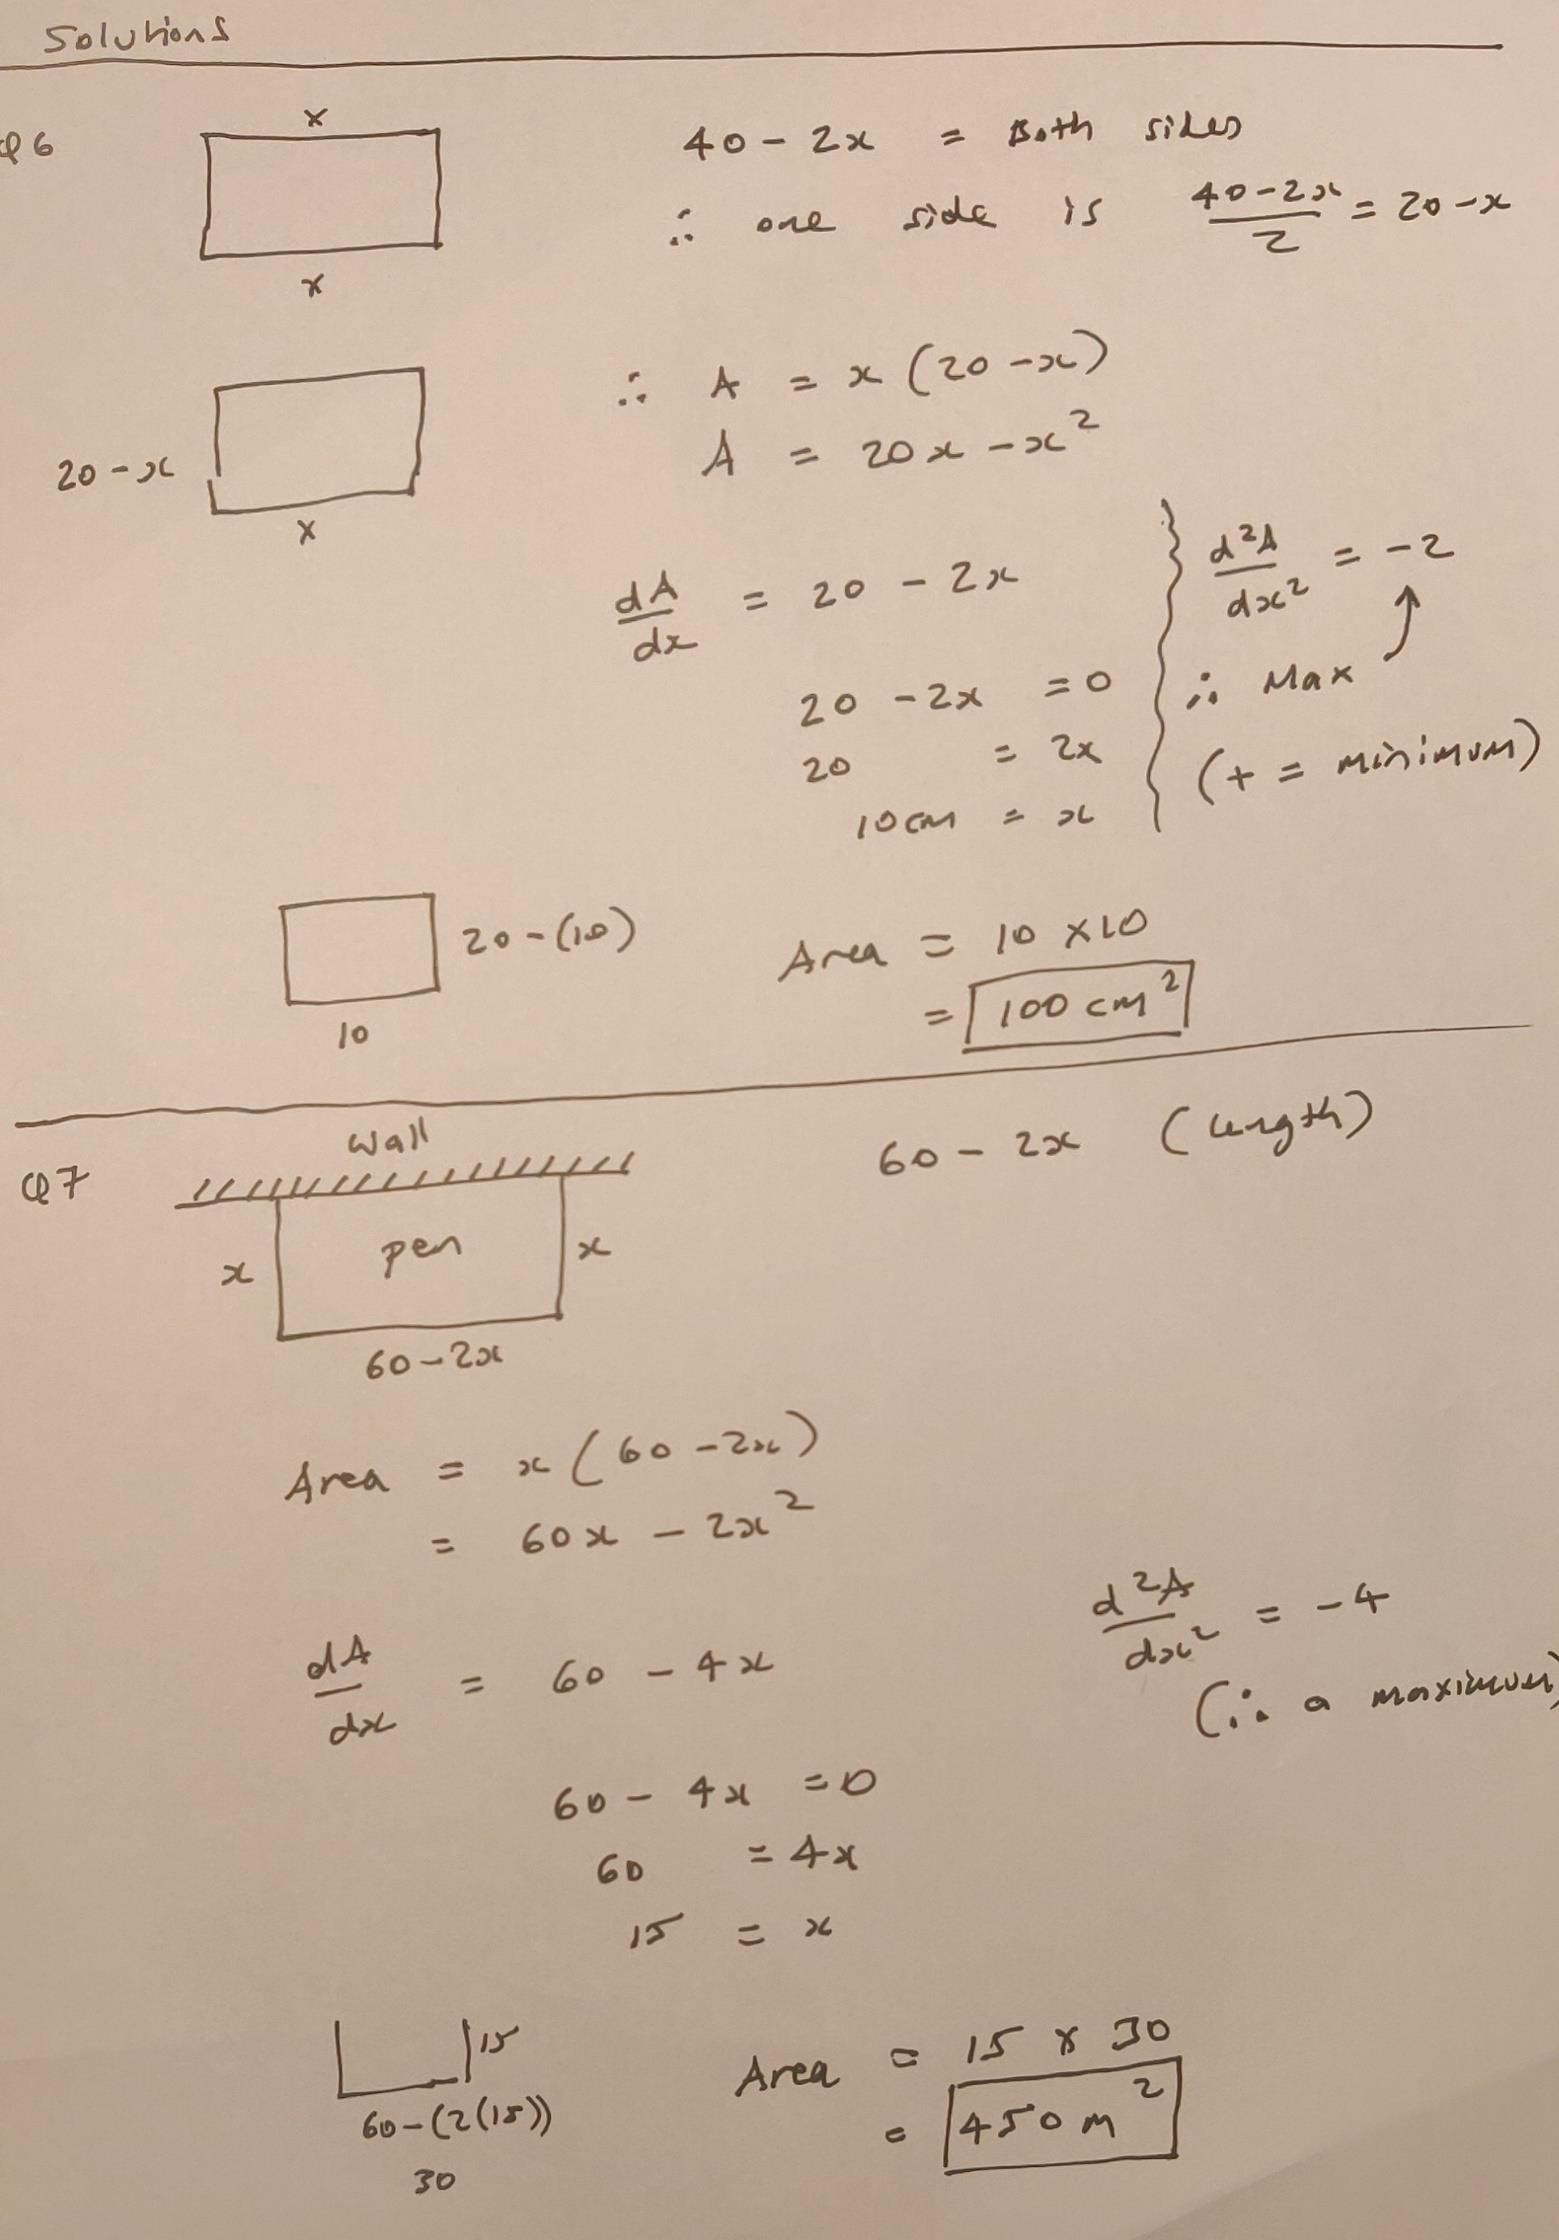 Solutions
Q6
x
x
40 - 2x = Both sides
∴ one side is (40-2x)/2 = 20-x
20-x
x
∴ A = x(20-x)
A = 20x - x²
dA/dx = 20 - 2x
20 - 2x = 0
20 = 2x
10cm = x
d²A/dx² = -2
∴ Max
(+ = minimum)
20-(10)
10
Area = 10 x 10
= 100 cm²
Q7
Wall
x
pen
x
60-2x
60 - 2x (length)
Area = x(60-2x)
= 60x - 2x²
dA/dx = 60 - 4x
60 - 4x = 0
60 = 4x
15 = x
d²A/dx² = -4
(∴ a maximum)
15
60-(2(15))
30
Area = 15 x 30
= 450 m²